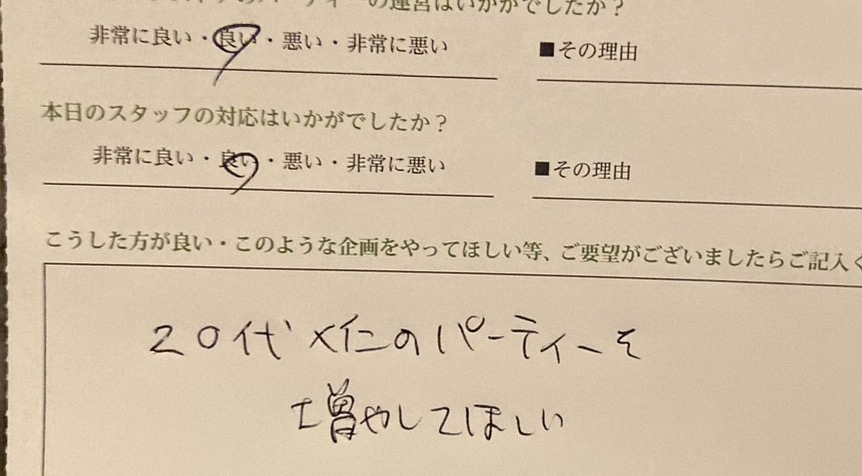 パーティーの運営はいかがでしたか？
非常に良い・良い・悪い・非常に悪い ■その理由
本日のスタッフの対応はいかがでしたか？
非常に良い・良い・悪い・非常に悪い ■その理由
こうした方が良い・このような企画をやってほしい等、ご要望がございましたらご記入く
20代メインのパーティーを
増やしてほしい